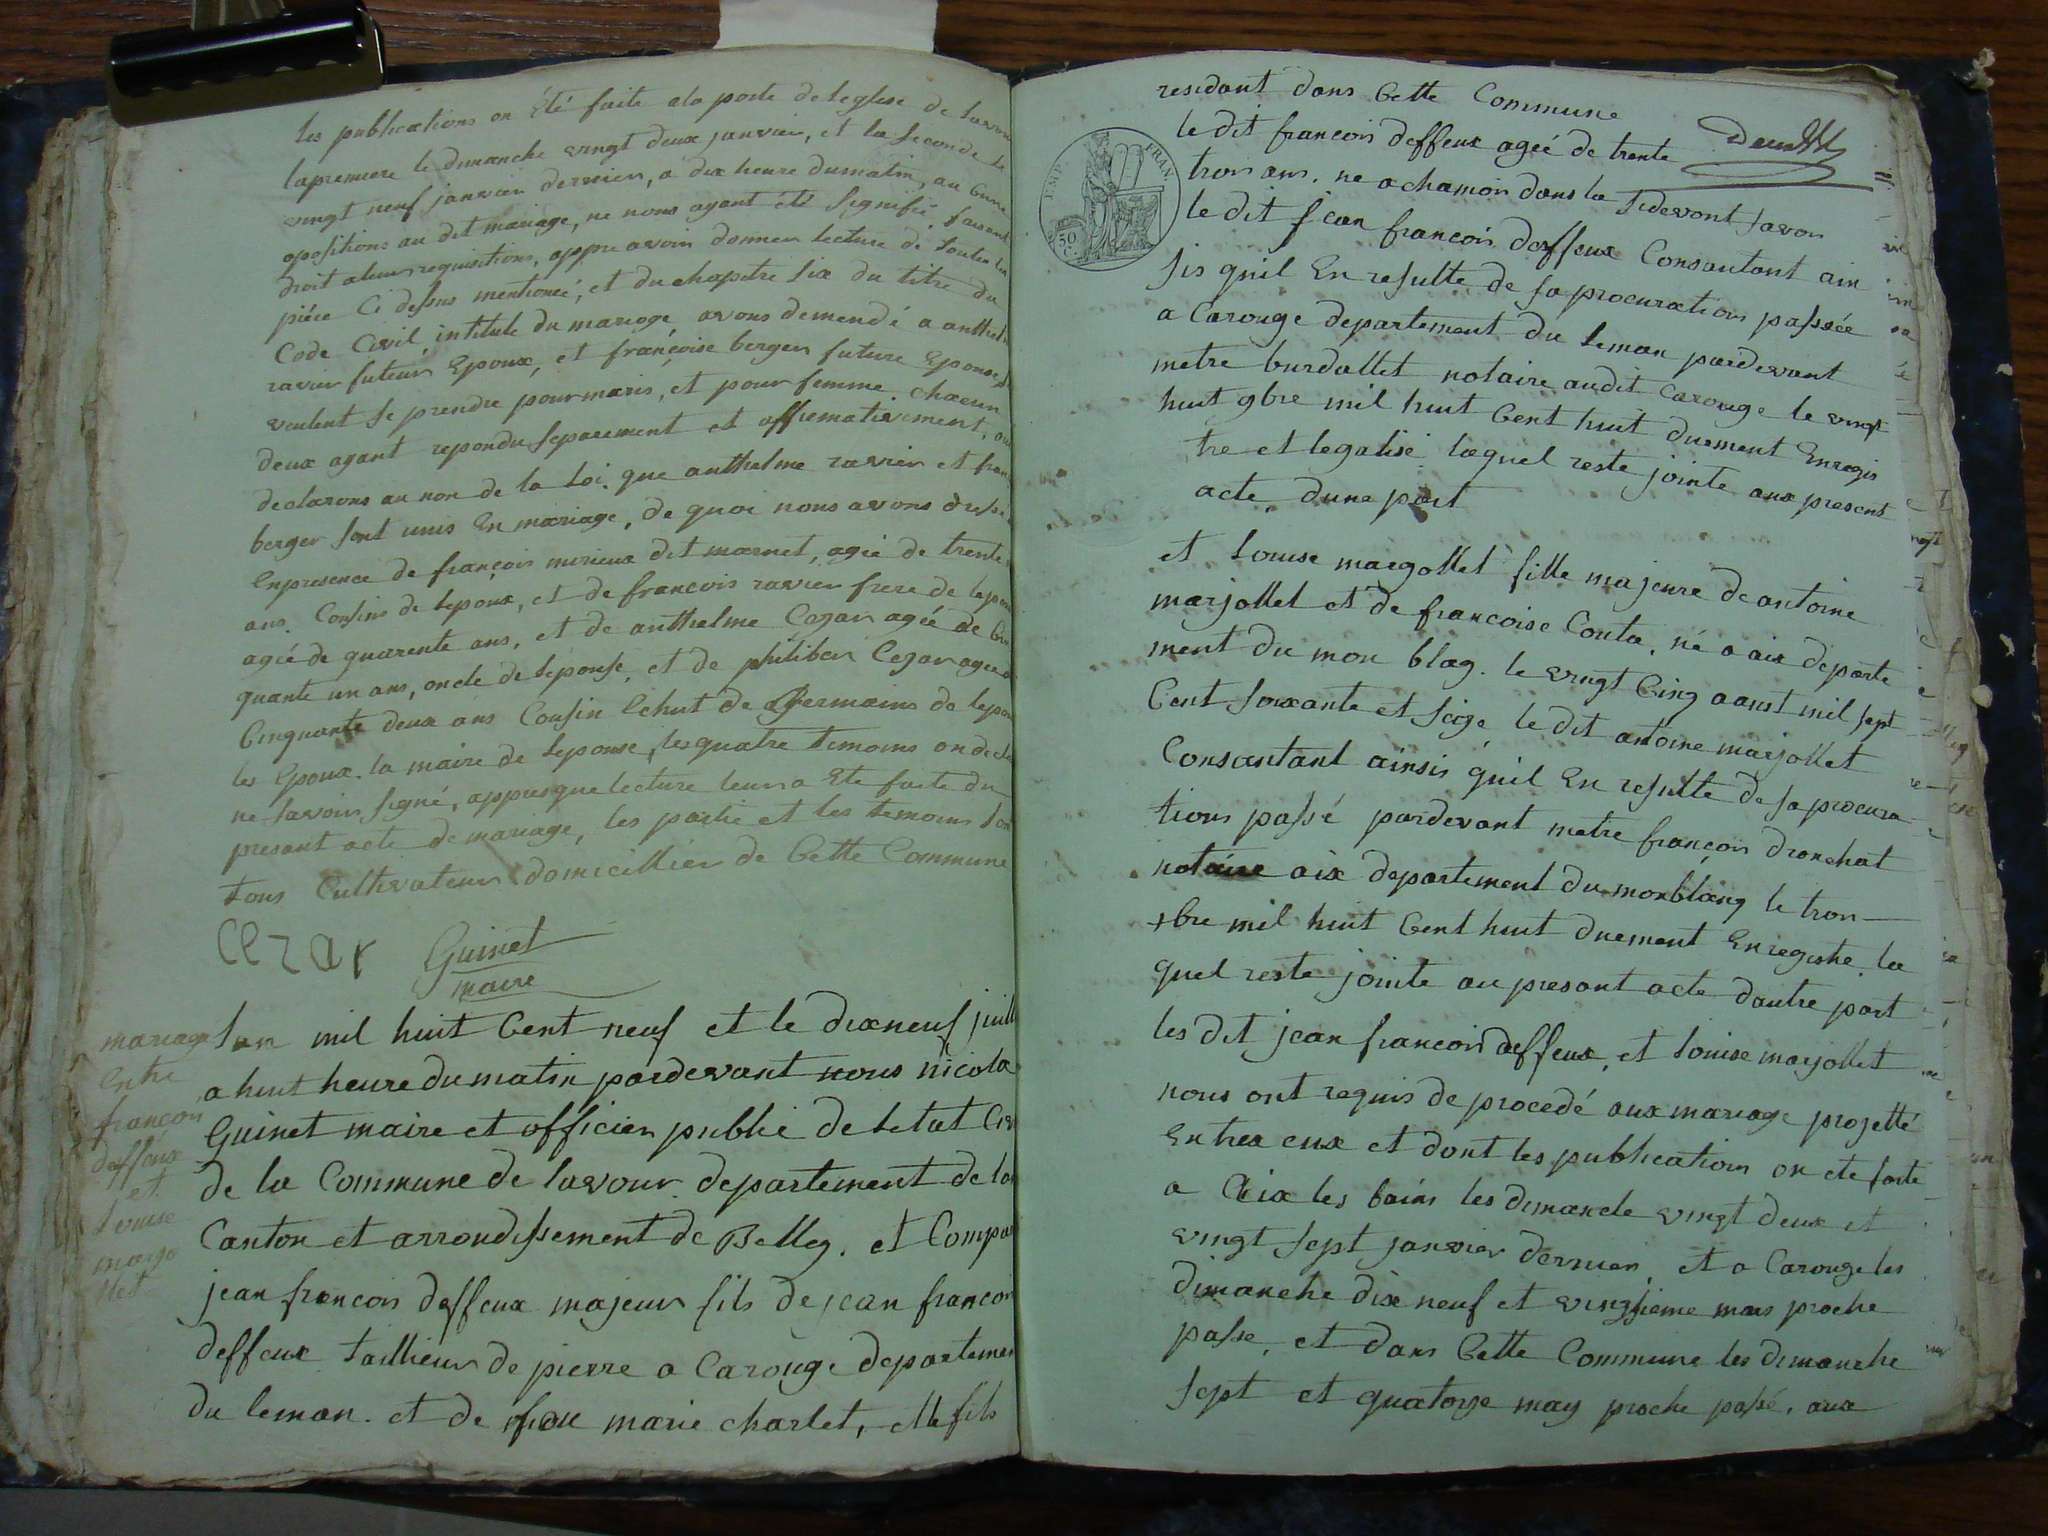 les publications on Eté faite ala porte de leglise de lavour
lapremiere le dimanche vingt deux janvier, et la seconde le
vingt neuf janvier dernier, a dix heure dumatin, au cune
opositions au dit mariage, ne nous ayant été signifié, faisant
droit aleur requisitions, appre avoir donner lecture de toutes les
piéce Ci dessus mentioneé, et du chapitre six du titre du
Code Civil, intitulé du mariage, avons demendé a anthel
ravier futeur Epoux, et françoise berger future Epouse
veulent se prendre pour maris, et pour femme chacun
deux ayant repondu separement et affirmativement,
declarons au non de la Loi, que anthelme ravier et fran
berger sont unis En mariage, de quoi nous avons dressé
Enpresence de françois mirieux dit marnet, agié de trente
ans, Cousins de lepoux, et de francois ravier frere de lepoux
agié de quarente ans, et de anthelme Cezar ageé de Cin
quante un ans, oncle de lepouse, et de philiber Cezar ageé
Cinquante deux ans Cousin de Germains de lepou
les Epoux, la maire de lepouse, les quatre temoins on decla
ne savoir signé, appres que lecture leur a Eté faite du
present acte de mariage, les partie et les temoins son
tous Cultivateur domicillier de Cette Commune
Cezar Guinet
maire
mariage
Entre
françoi
deffeux
et
Louise
marjo
llet
Lan mil huit Cent neuf et le dixneuf juill
a huit heure du matin pardevant nous nicola
Guinet maire et officier public de letat Civ
de la Commune de lavour departement de lai
Canton et arrondissement de Belley. et Compar
jean francois deffeux majeur fils de jean francoi
deffeux taillieur de pierre a Carouge departemen
du leman. et de marie charlet, fils
residant dans Cette Commune
le dit francois deffeux ageé de trente
trois ans. ne a chamoix dans la sidevant savoi
le dit jean francois deffeux Consantant ain
sis quil En resulte de sa procuration passée
a Carouge departement du leman pardevant
metre burdallet notaire audit Carouge le vingt
huit 9bre mil huit Cent huit duement Enregis
tre et legalisé laquel reste jointe aux present
acte, dune part
EMP. FRAN.
50
C.
et Louise margollet fille majeure de antoine
marjollet et de francoise Couta, né a aix departe
ment du mon blag. le vingt Cinq aoust mil sept
Cent soixante et seize le dit antoine marjollet
Consantant ainsis quil En resulte de sa procura
tions passé pardevant metre françois dronchat
notaire aix departement du monblang le trois
xbre mil huit Cent huit duement Enregistre, la
quel reste jointe au presant acte dautre part
les dit jean francois deffeux, et Louise marjollet
nous ont requis de procedé aux mariage projetté
Entres eux et dont les publications on ete faite
a Aix les bains les dimanche vingt deux et
vingt sept janvier dernier, et a Carouge les
dimanche dix neuf et vingtieme mars proche
passe, et dans Cette Commune les dimanche
sept et quatorze may proche passé, aux